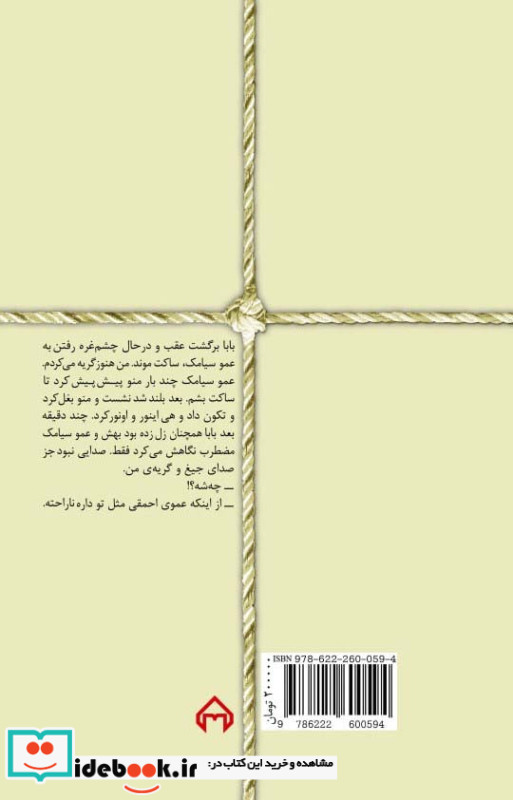 بابا برگشت عقب و درحال چشم‌غره رفتن به
عمو سیامک، ساکت موند. من هنوز گریه می‌کردم.
عمو سیامک چند بار منو پیـش پیـش کرد تا
ساکت بشم. بعد بلند شد نشست و منو بغل کرد
و تکون داد و هی اینور و اونور کرد. چند دقیقه
بعد بابا همچنان زل زده بود بهش و عمو سیامک
مضطرب نگاهش می‌کرد فقط. صدایی نبود جز
صدای جیغ و گریه‌ی من.
ــ چه‌شه؟!
ــ از اینکه عموی احمقی مثل تو داره ناراحته.
ISBN 978-622-260-059-4
۲۰۰۰۰ تومان
9 786222 600594
مشاهده و خرید این کتاب در:
idebook.ir